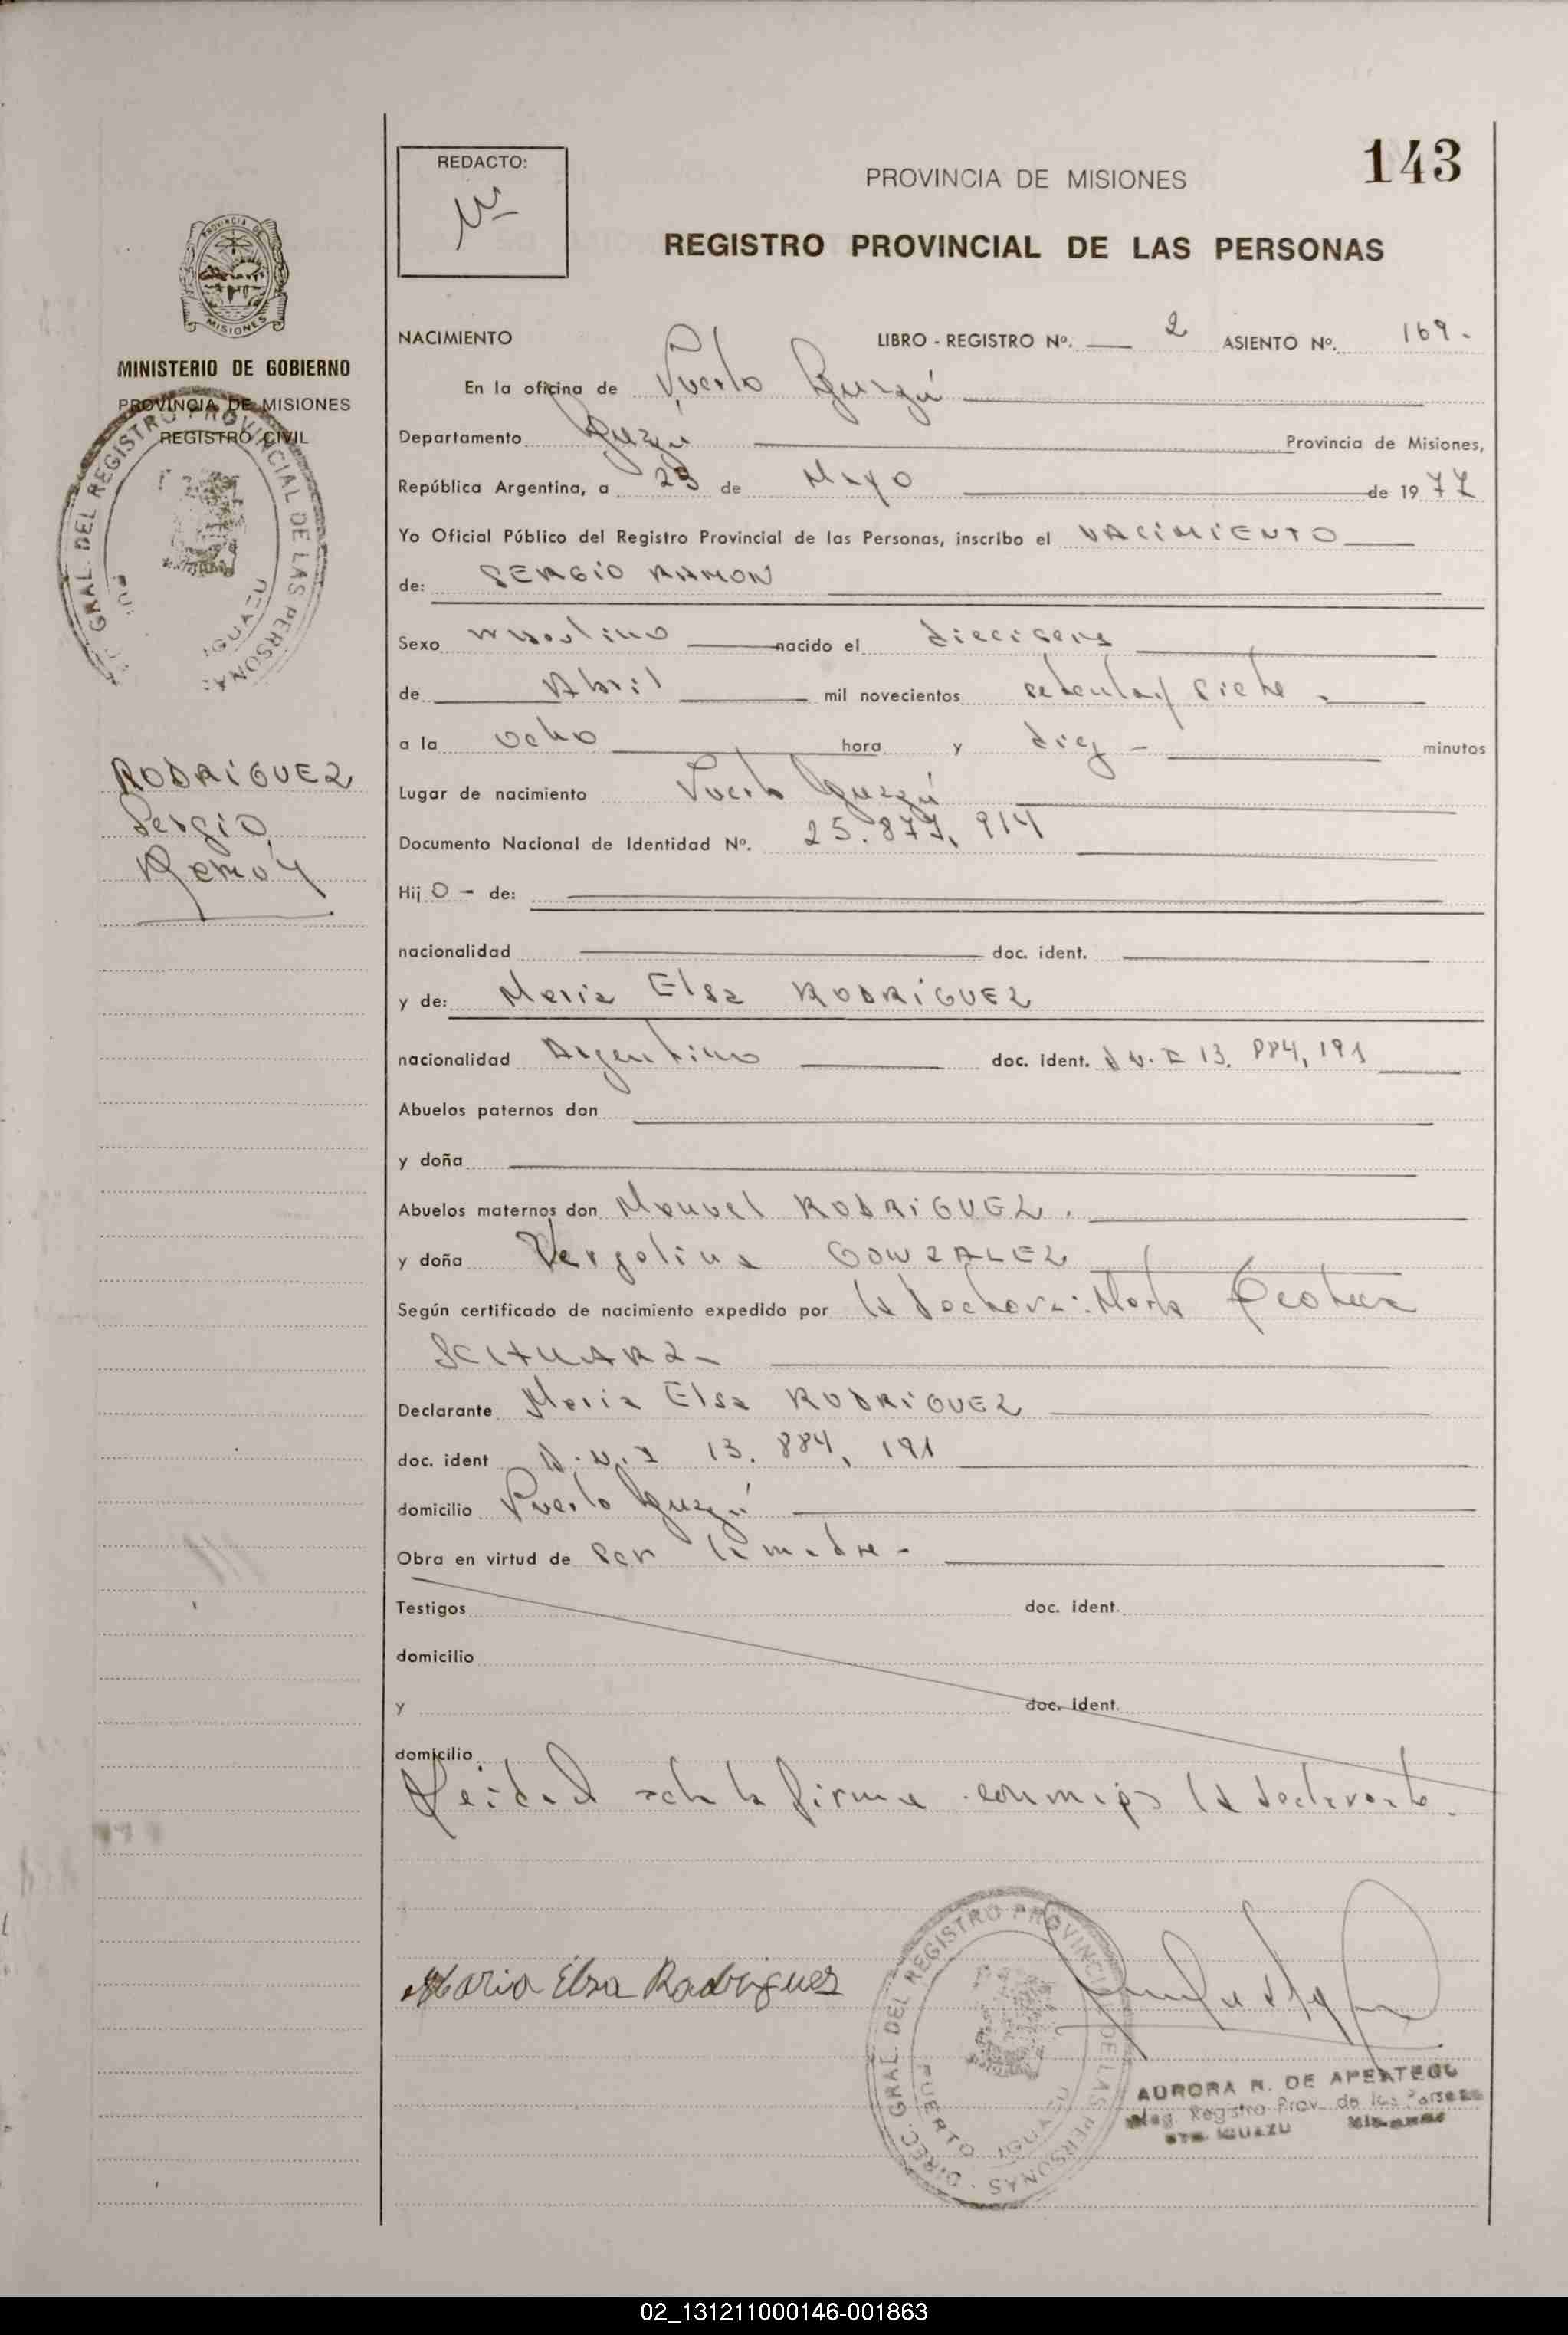 143
REDACTO:
PROVINCIA DE MISIONES
REGISTRO PROVINCIAL DE LAS PERSONAS
PROVINCIA DE
MISIONES
MINISTERIO DE GOBIERNO
PROVINCIA DE MISIONES
REGISTRO CIVIL
GRAL. DEL REGISTRO PROVINCIAL DE LAS PERSONAS
RODRIGUEZ
Sergio
Ramón
NACIMIENTO LIBRO - REGISTRO Nº. 2 ASIENTO Nº. 169.
En la oficina de Puerto Iguazú
Departamento Iguazú Provincia de Misiones,
República Argentina, a 23 de Mayo de 1977
Yo Oficial Público del Registro Provincial de las Personas, inscribo el NACIMIENTO
de: SERGIO RAMON
Sexo masculino nacido el dieciseis
de Abril mil novecientos setenta y siete.
a la ocho hora y diez - minutos
Lugar de nacimiento Puerto Iguazú
Documento Nacional de Identidad Nº. 25.877,914
Hij o - de:
nacionalidad doc. ident.
y de: Maria Elsa RODRIGUEZ
nacionalidad Argentina doc. ident. D N. I 13.884,191
Abuelos paternos don
y doña
Abuelos maternos don Manuel RODRIGUEZ.
y doña Vergelina GONZALEZ
Según certificado de nacimiento expedido por la doctora: Marta
Declarante Maria Elsa RODRIGUEZ
doc. ident D.N.I 13.884,191
domicilio Puerto Iguazú
Obra en virtud de ser la madre -
Testigos doc. ident.
domicilio
y doc. ident.
domicilio
Leida el acta la firma conmigo la declarante.
Maria Elsa Rodriguez
DIREC. GRAL. DEL REGISTRO PROVINCIAL DE LAS PERSONAS
PUERTO
AURORA N. DE APEATEGU
Registro Prov. de las Personas
IGUAZU Misiones
02_131211000146-001863